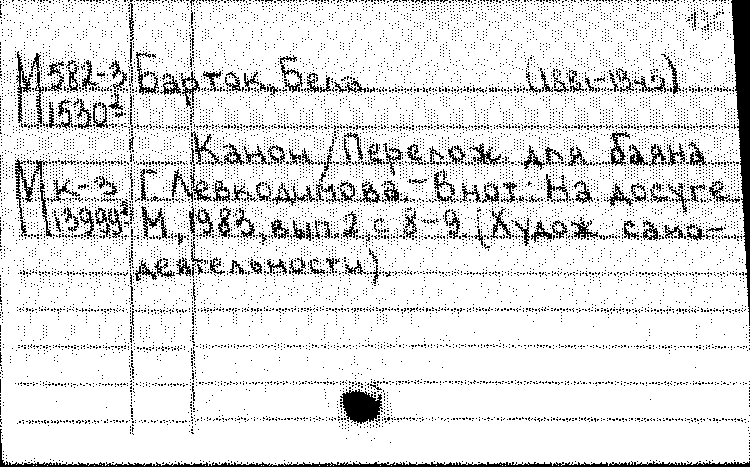 М 582-3 Барток, Бела (1881-1945)
П 1530²
Канон / Перелож для баяна
М к-3 Г. Левкодимова. - В нот: На досуге
П 13999² М, 1983, вып 2, с 8-9 (Худож само-
деятельности).